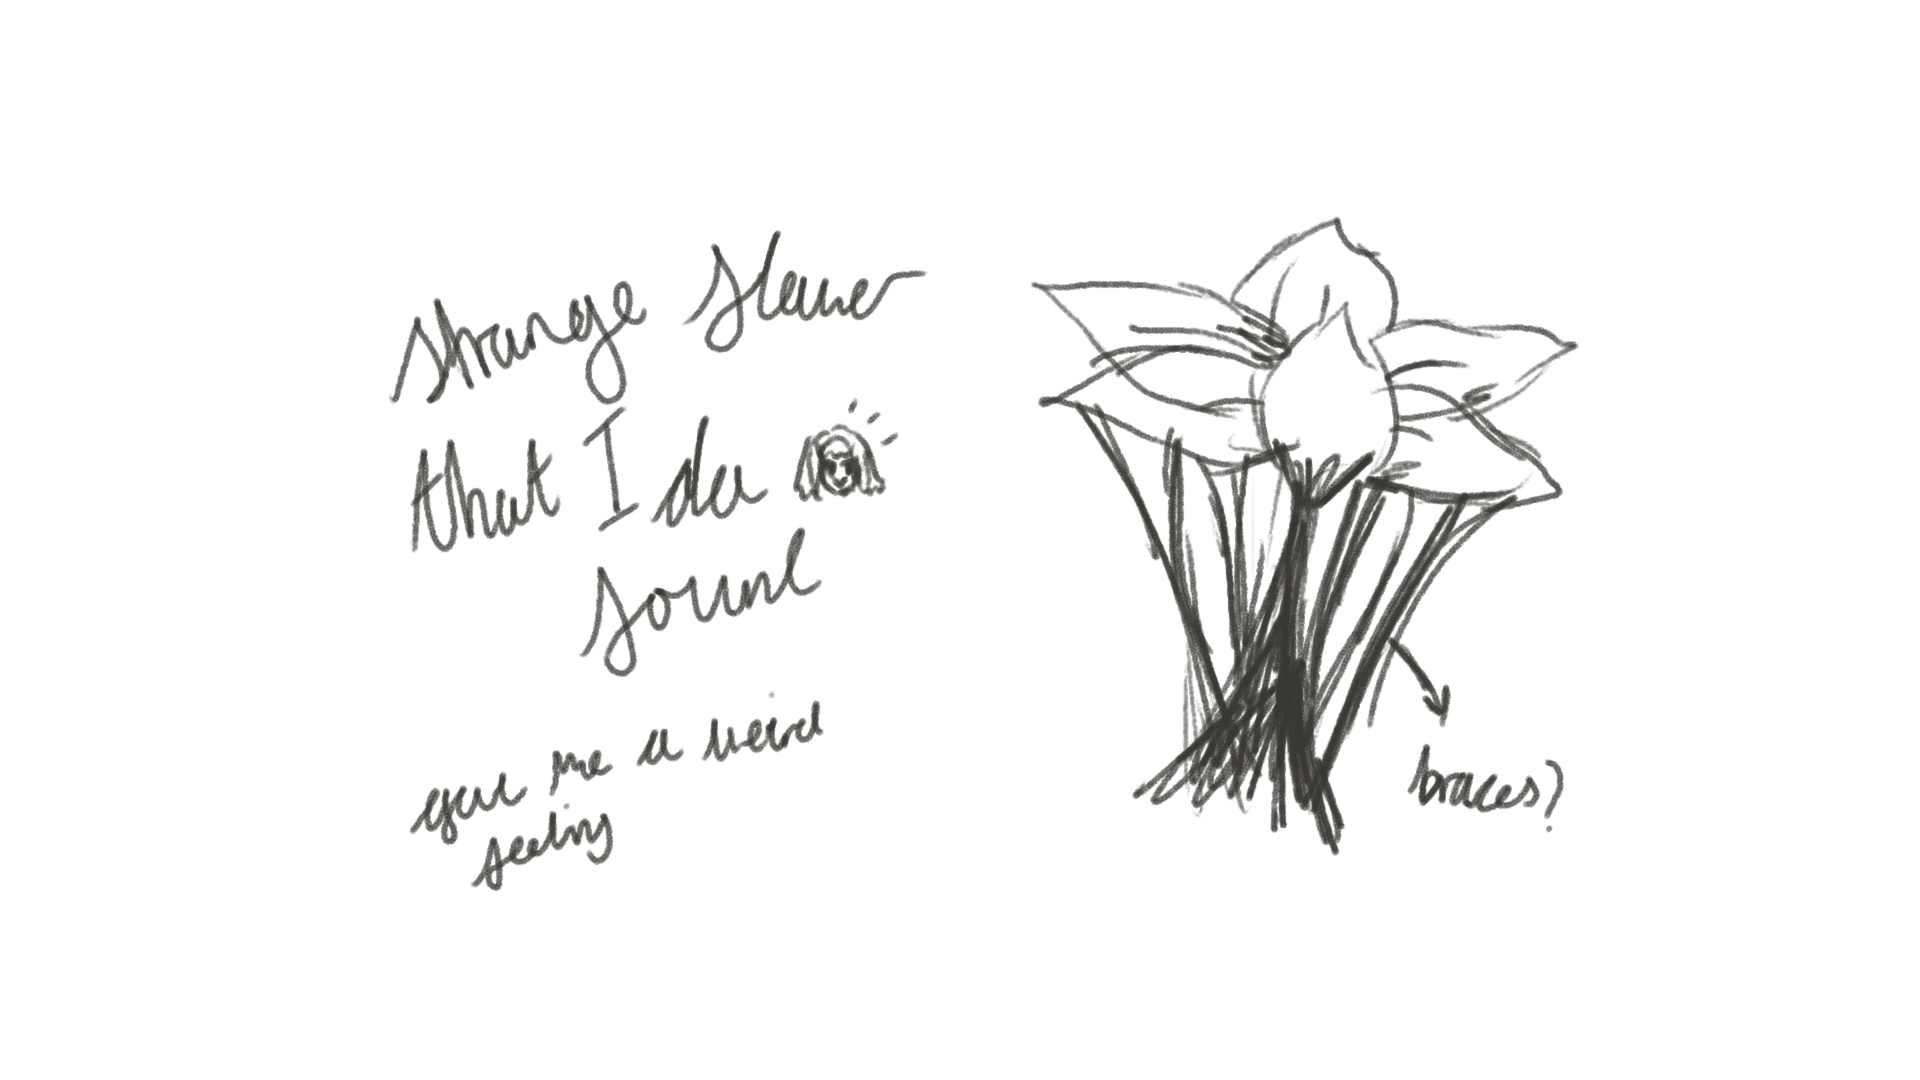 strange flower
that I
found
gave me a weird
feeling
braces?